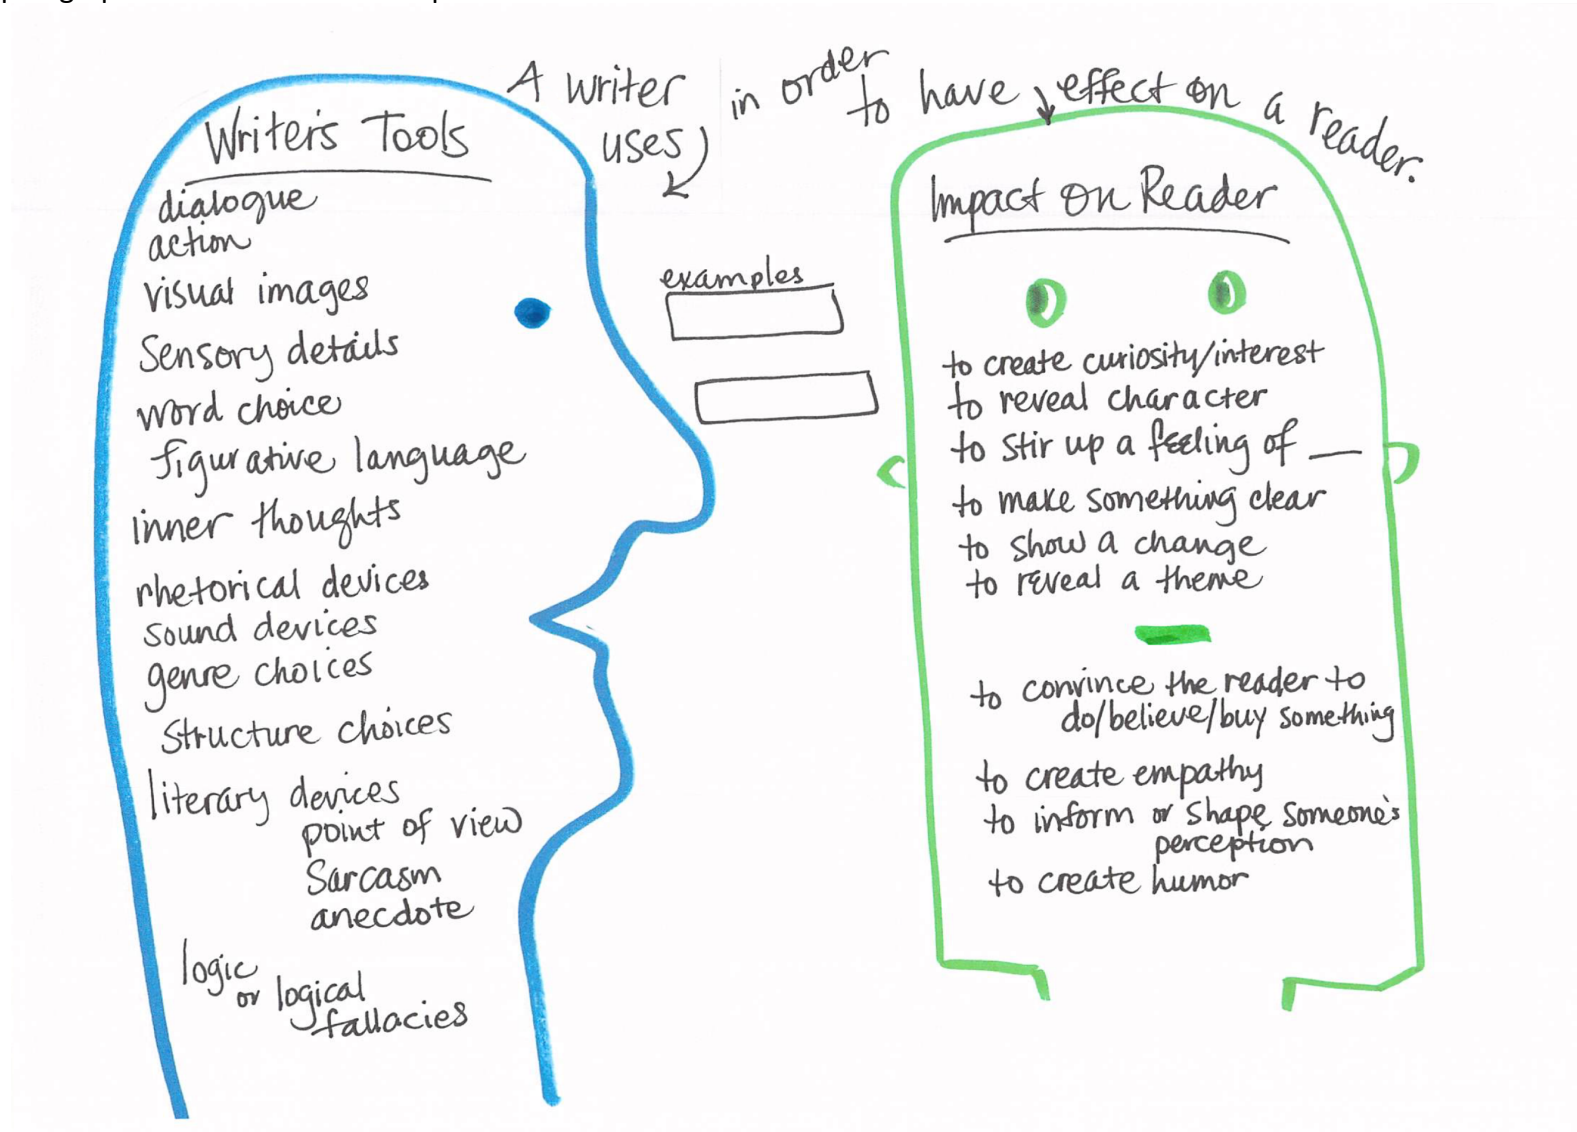 A writer uses in order to have effect on a reader.
Writer's Tools
dialogue
action
visual images
Sensory details
word choice
figurative language
inner thoughts
rhetorical devices
sound devices
genre choices
Structure choices
literary devices
point of view
Sarcasm
anecdote
logic
or logical
fallacies
examples
Impact on Reader
to create curiosity/interest
to reveal character
to stir up a feeling of __
to make something clear
to show a change
to reveal a theme
to convince the reader to
do/believe/buy something
to create empathy
to inform or shape someone's
perception
to create humor